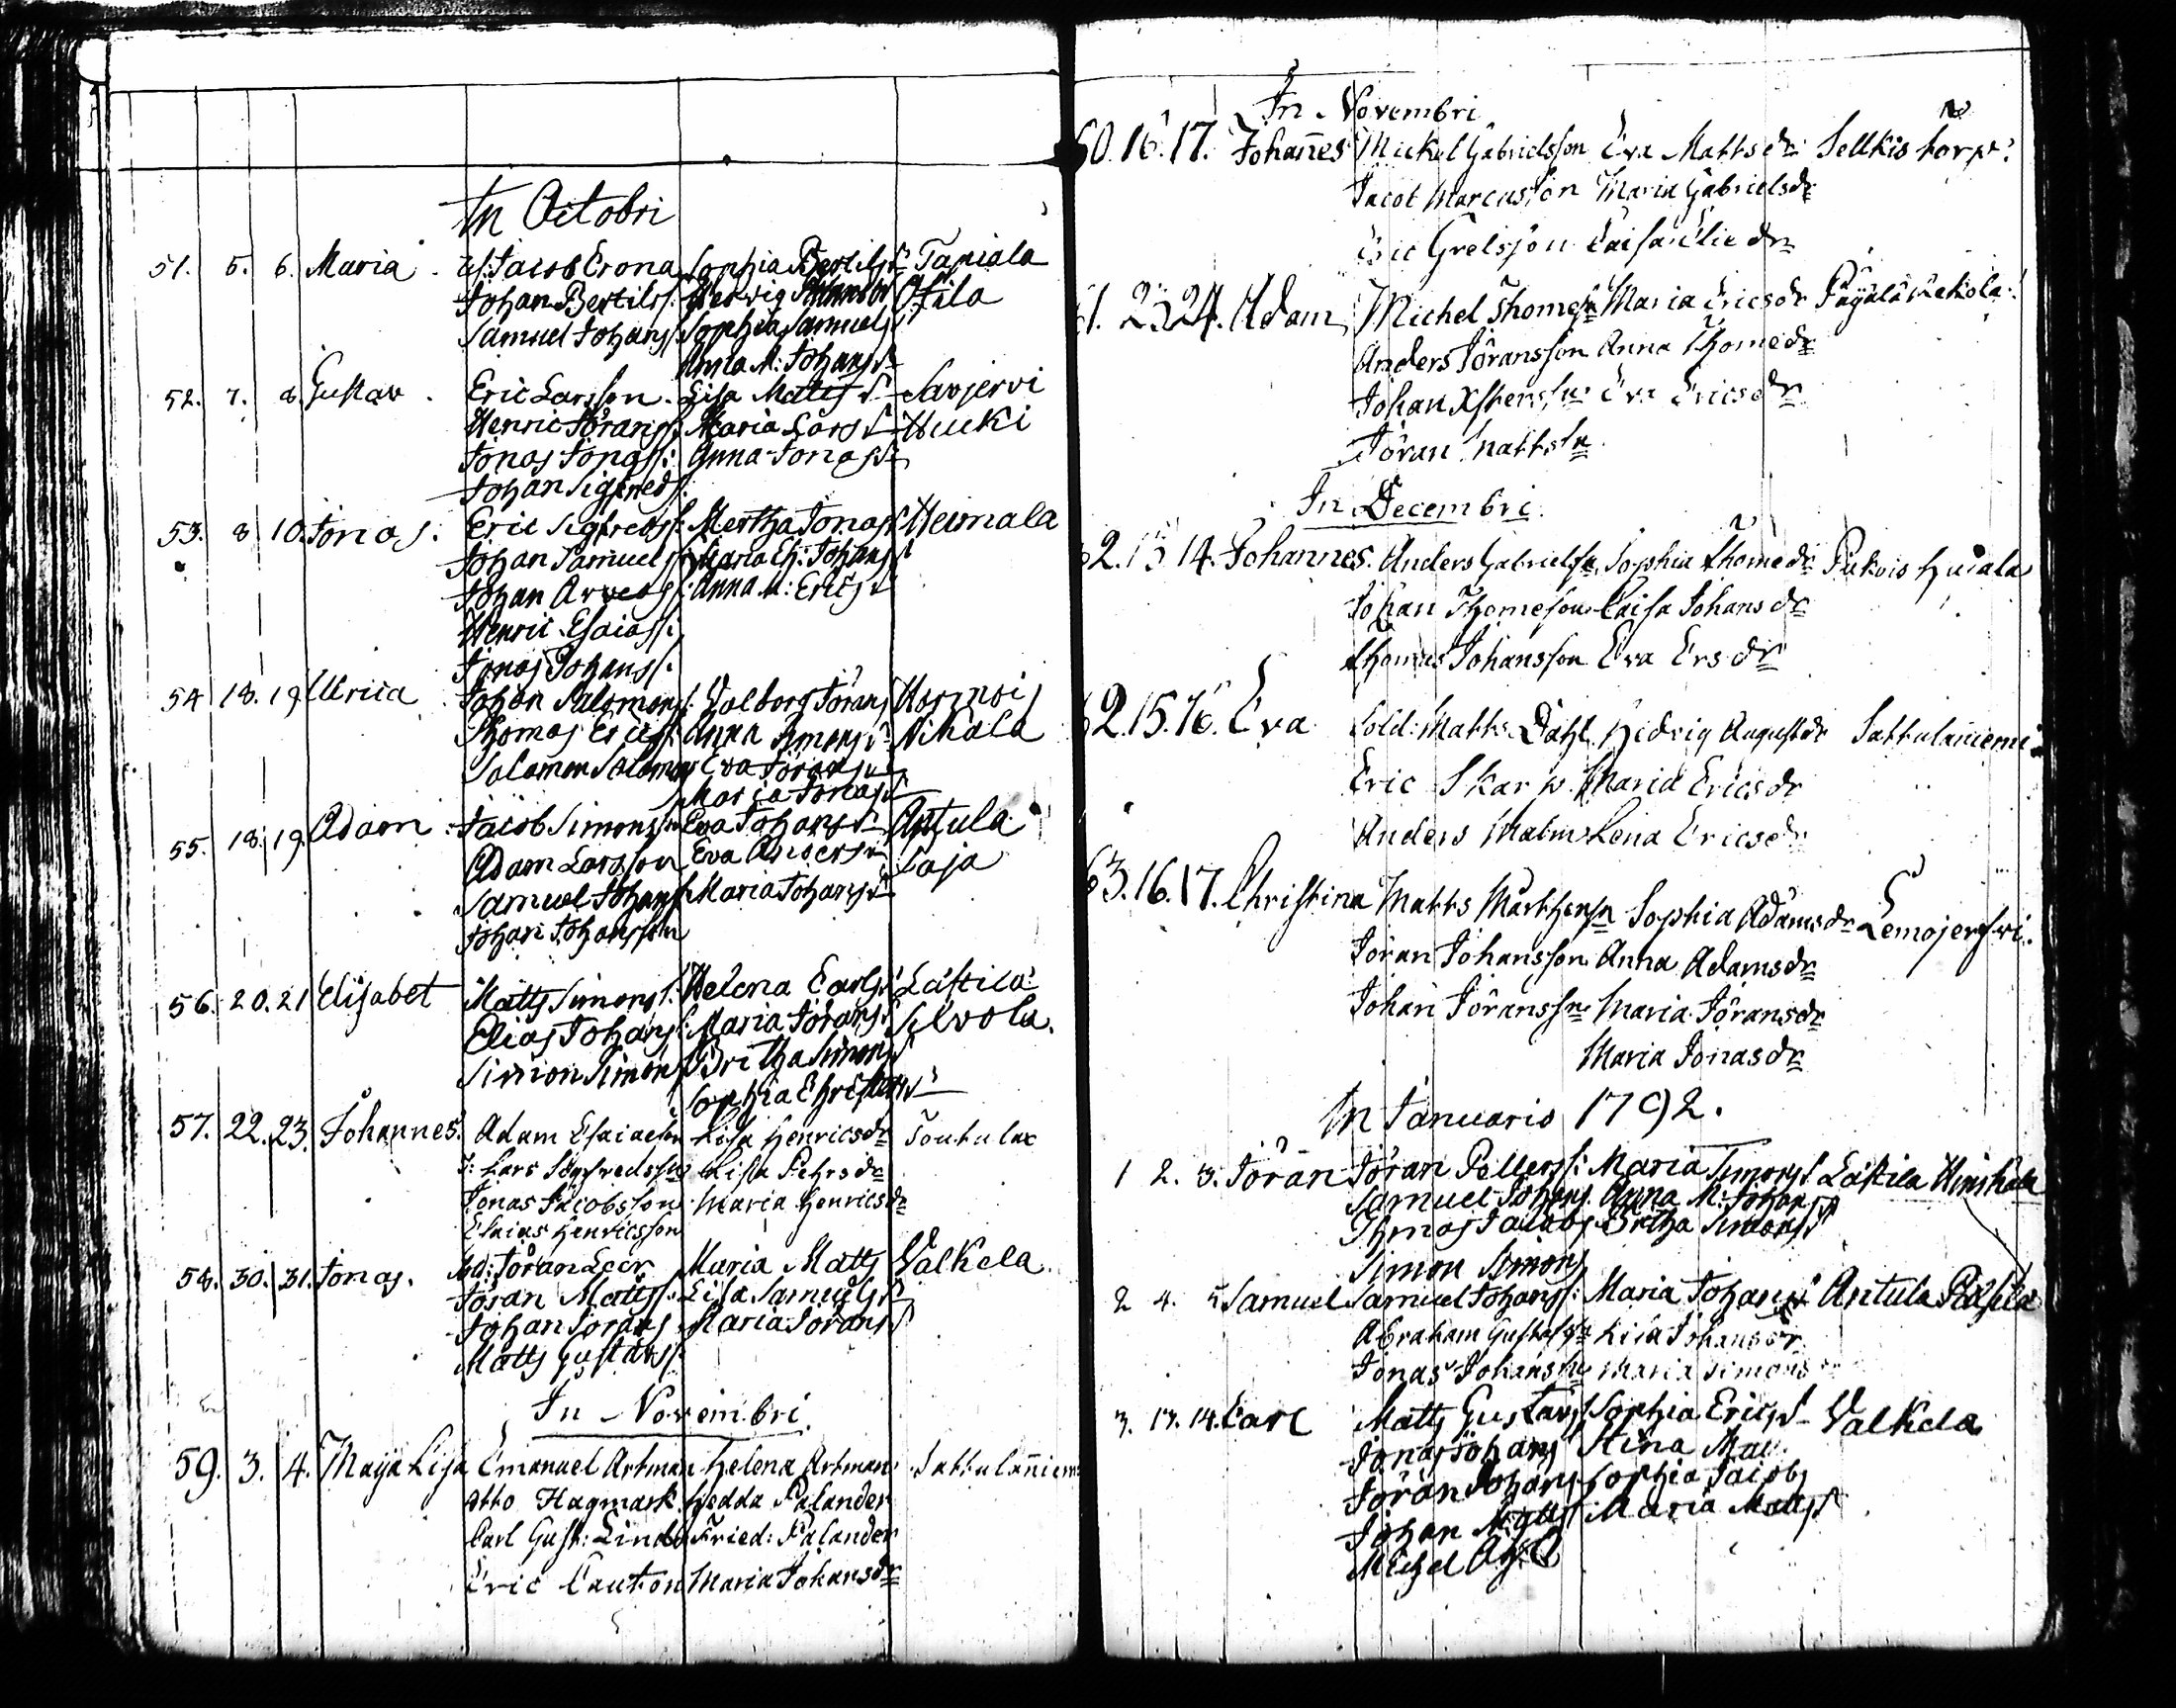 In Octobri
51. 5. 6. Maria Jacob Crona Sophia Bertils Tapiala
Johan Bertilss: Hedvig Otila
Samuel Johanss: Sophia Samuels
Anna M: Johans
52. 7. 8. Gustav Eric Larsson Lisa Matts Savjervi
Henric Jöranss: Maria Lars Hucki
Jonas Jonass: Anna Jonas
Johan Sigfreds
53. 8 10. Jonas. Eric Sigfredss: Mertha Jonas Heimala
Johan Samuels Maria Johans
Johan Anna M: Erics
Henric Esaiass:
Jonas Johanss.
54 18. 19. Ulrica Johan Salomons: Valborg Jörans
Thomas Ericss: Anna Simons Nikala
Salamon Salomons Eva Jörans
Maria Jonas
55. 18. 19. Adam Jacob Simonsson Eva Johans Antula
Adam Larsson Eva Anders Laja
Samuel Johans Maria Johans
Johan Johansson
56. 20. 21 Elisabet Matts Simons: Helena Carls Lastila
Elias Johans: Maria Jörans Selvola.
Simon Simons Britha Simons
Sophia Christers
57. 22. 23. Johannes. Adam Esaiaeson Lisa Henricsdr Toutula
Lars Sigfredssn Lisa Pehrsdr
Jonas Jacobsson Maria Henricsdr
Esaias Henricsson
58. 30. 31. Jonas. Jöran Maria Matts Valkela.
Jöran Mattss: Lisa Samuels
Johan Jörans Maria Jörans
Matts Gustavss.
In Novembri.
59. 3. 4. Maija Lisa Emanuel Artman Helena Artman Sattulaniem
Otto Hagmark Hedda Palander
Carl Gust: Lind Fried: Palander
Eric Cauton Maria Johansdr
In Novembri
60. 16. 17. Johannes Mickel Gabrielsson Eva Mattsdr Sellkis torp:
Jacob Marcusson Maria Gabrielsdr
Eric Grelsson Caisa Eliedr
1. 23 24. Adam Michel Thomesn Maria Ericsdr
Anders Jöransson Anna Thomedr
Johan Xstersn Eva Ericsdr
Jöran Mattsn
In Decembri.
2. 13 14. Johannes. Anders Gabrielsn Sophia Thomedr Pukois Huiala
Johan Thomeson Caisa Johansdr
Thomas Johansson Eva Ersdr
2. 15. 16. Eva Sold: Matts Dahl Hedvig Augustdr Sattulaniemi
Eric Skarp Maria Ericsdr
Anders Malm Lena Ericsdr
63. 16. 17. Christina Matts Mårthensn Sophia Adamsdr Lemojerfwi.
Jöran Johansson Anna Adamsdr
Johan Jöranssn Maria Jöransdr
Maria Jonasdr
In Januario 1792.
1 2. 3. Jöran Jöran Pellerss: Maria Simons Lastila
Samuel Johans. Anna M: Johans
Thomas Jacobs Britha Simons
Simon Simons
2 4. 5 Samuel Samuel Johanss: Maria Johans Antula
Abraham Gustafsn Lisa Johansdr
Jonas Johanssn Maria Simonsdr
3. 13. 14. Carl Matts Gustavs Sophia Erics Valkela
Jonas Johans Stina
Jöran Johans Sophia Jacobs
Johan Matts Maria Matts
Michel